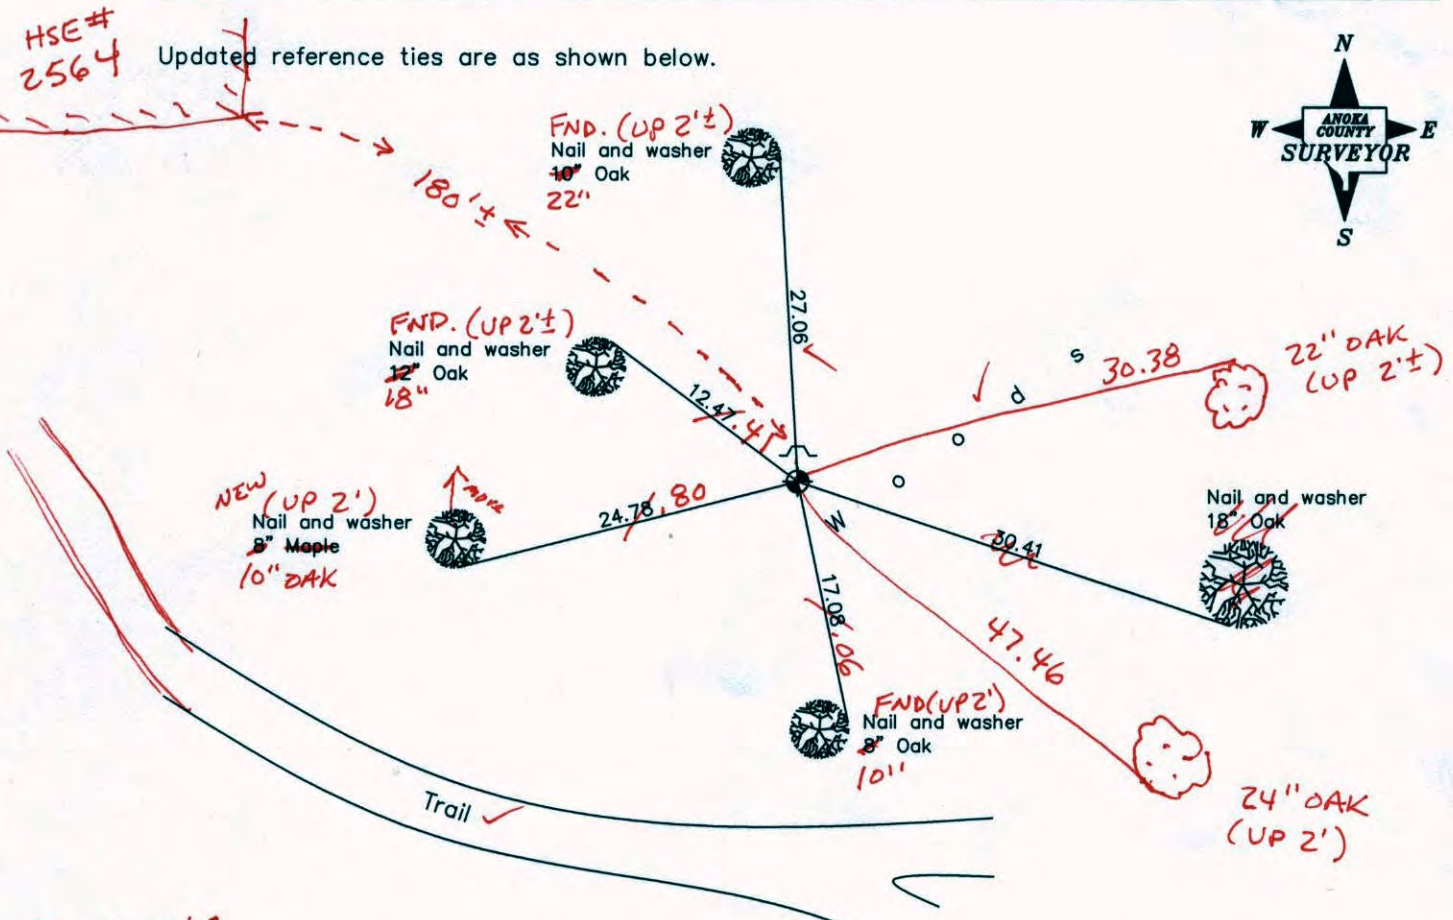 HSE#
2564
Updated reference ties are as shown below.
N
W
ANOKA
COUNTY
E
SURVEYOR
S
FND. (UP 2'±)
Nail and washer
10" Oak
22"
180'±
27.06
FND. (UP 2'±)
Nail and washer
12" Oak
18"
12.47 .41
s
30.38
22" OAK
(UP 2'±)
d
o
o
W
NEW
(UP 2')
Nail and washer
8" Maple
10" OAK
MOVE
24.78 .80
Nail and washer
18" Oak
30.41
17.08 .06
47.46
FND (UP 2')
Nail and washer
8" Oak
10"
Trail
24" OAK
(UP 2')